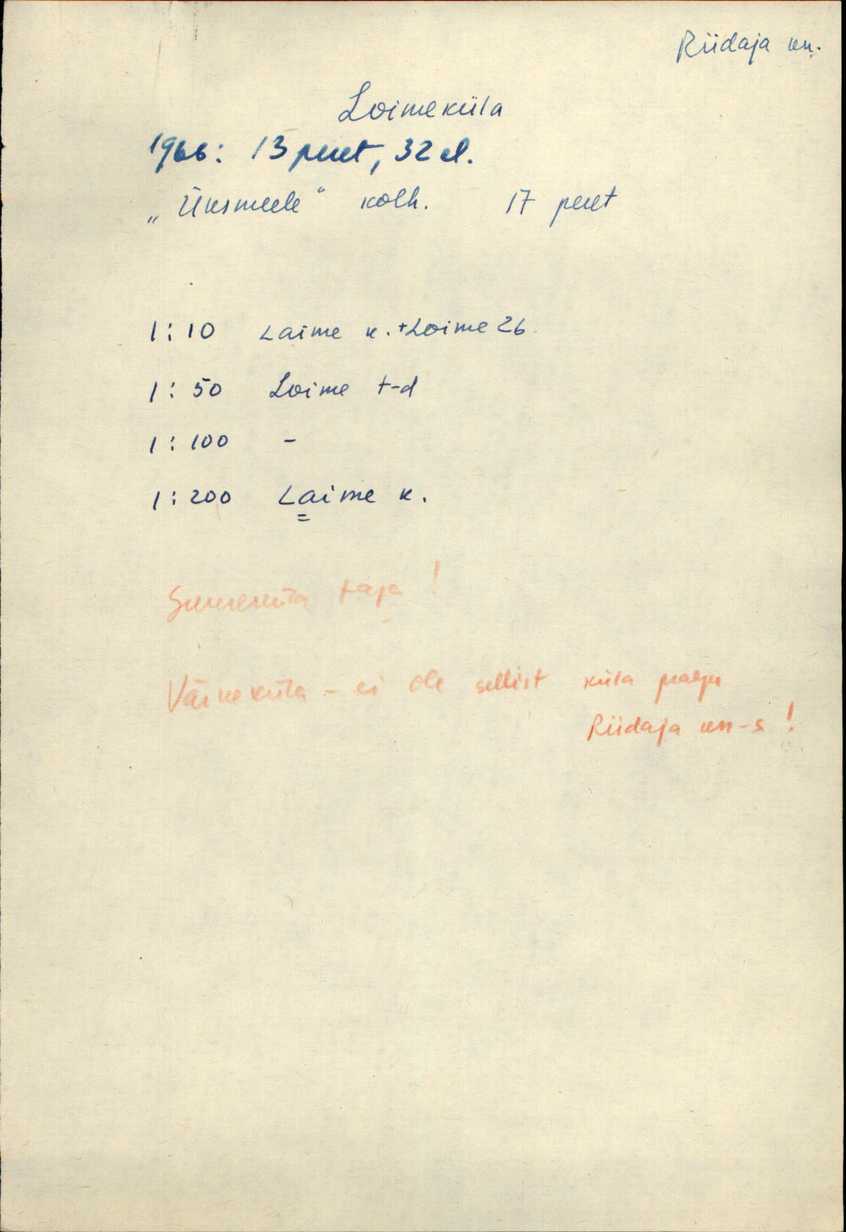 Riidaja kn.
Loimeküla
1966: 13 peret, 32 el.
„Üksmeele“ kolh. 17 peret
1:10 Laime k. + Loime 26
1:50 Loime t-d
1:100 -
1:200 Laime k.
taga!
Väikeküla - ei ole sellist küla praegu
Riidaja kn-s!